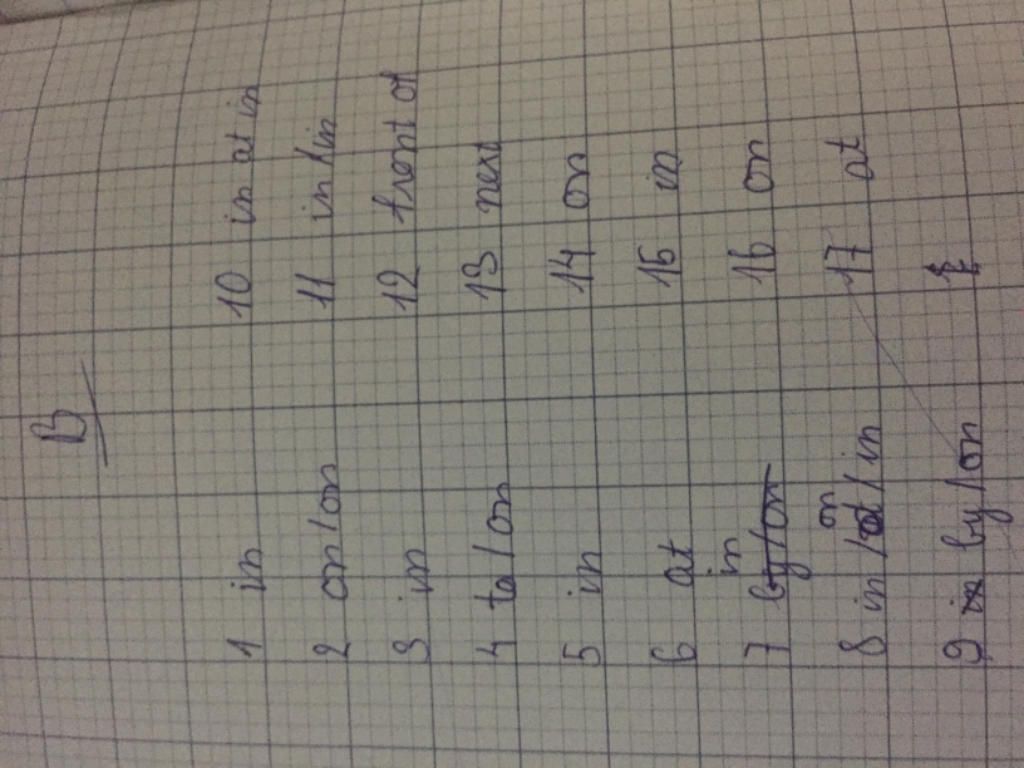 B
1 in
2 on/on
3 in
4 to/on
5 in
6 at
7 in
8 in/on/in
9 by/on
10 in at in
11 in/in
12 front of
13 next
14 on
16 in
16 on
17 at